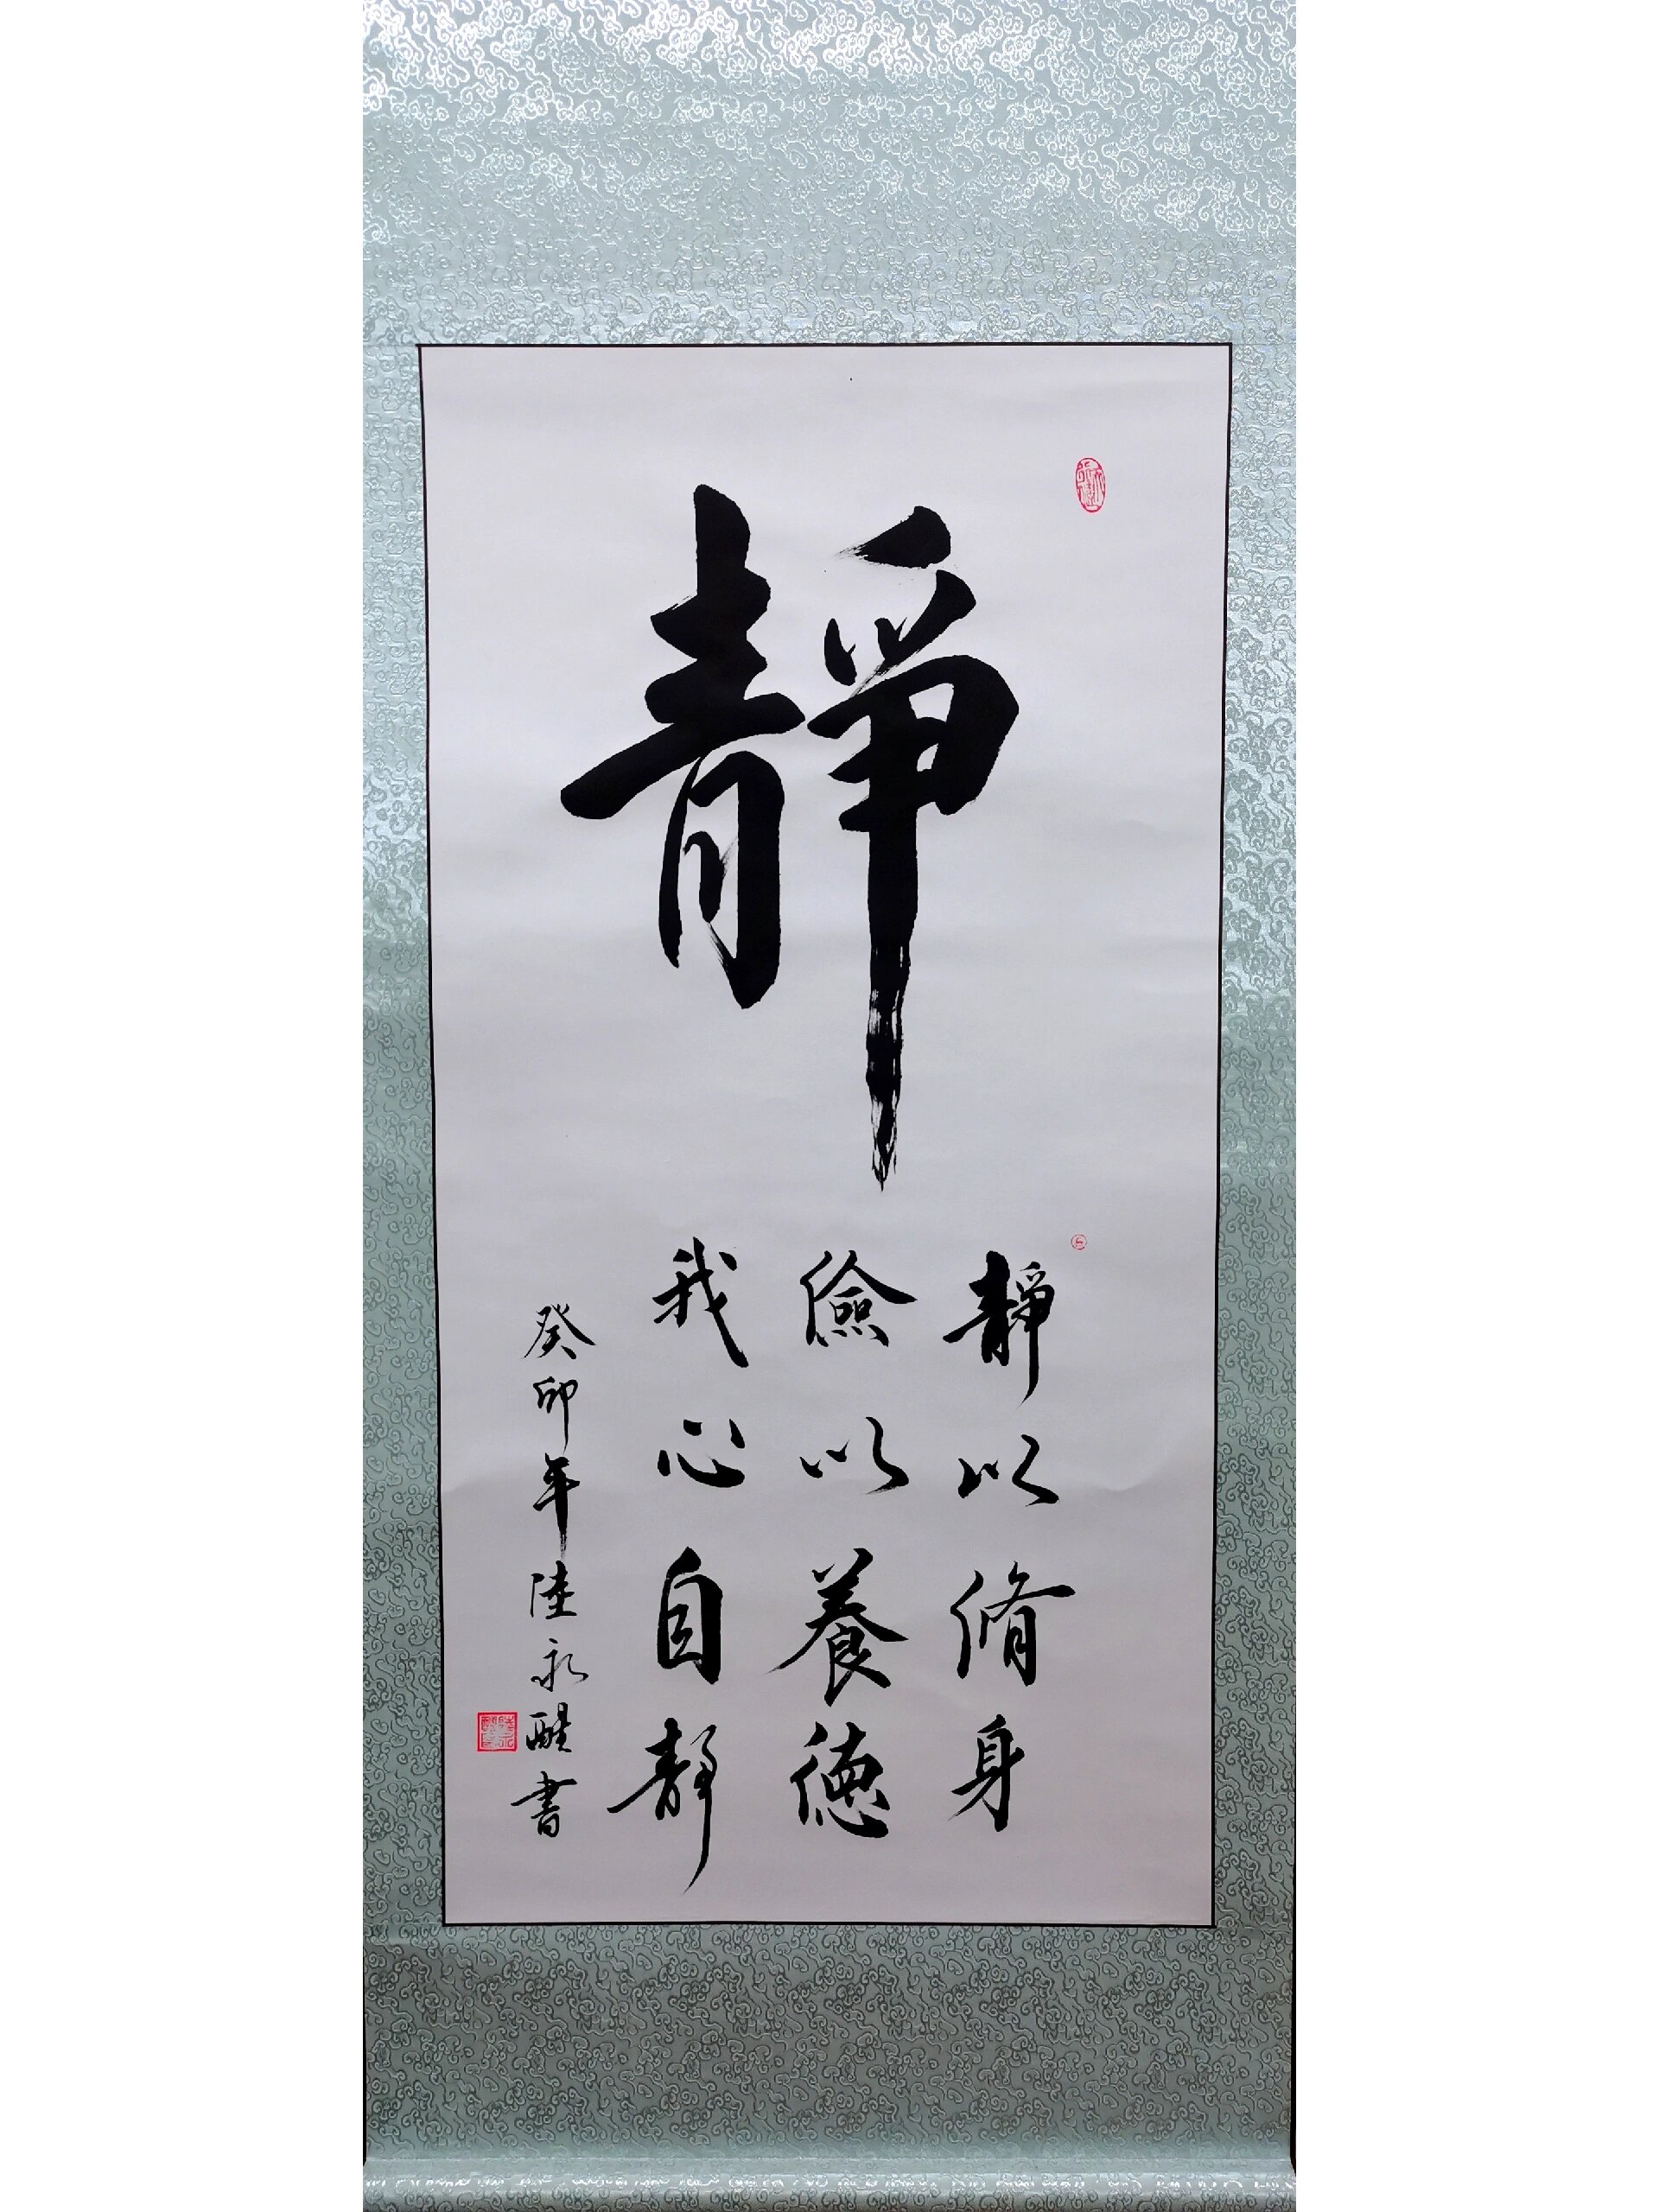 靜
靜以脩身
儉以養德
我心自靜
癸卯年陸永醒書